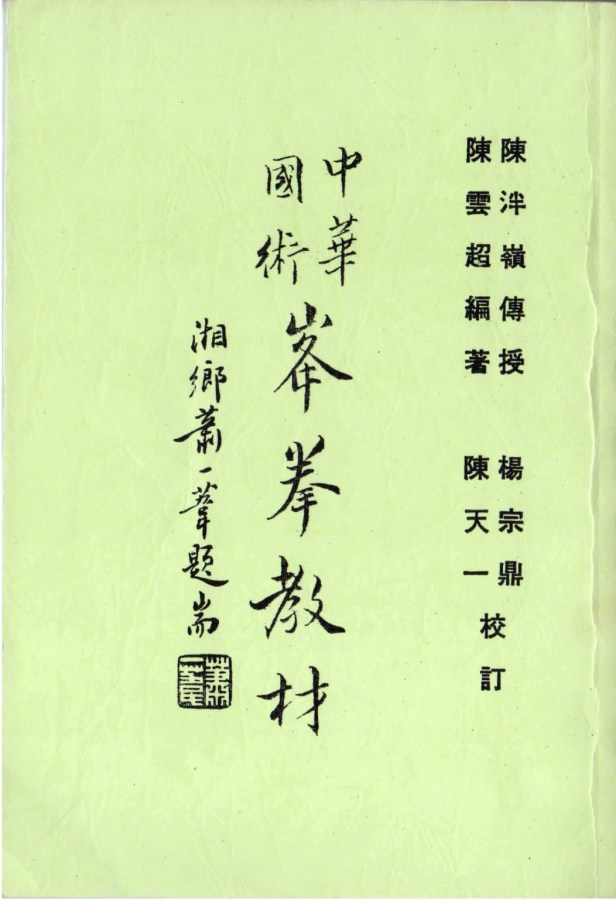 陳泮嶺傳授 楊宗鼎
陳雲超編著 陳天一
校訂
中華
國術
峯拳教材
湘鄉蕭一葦題耑